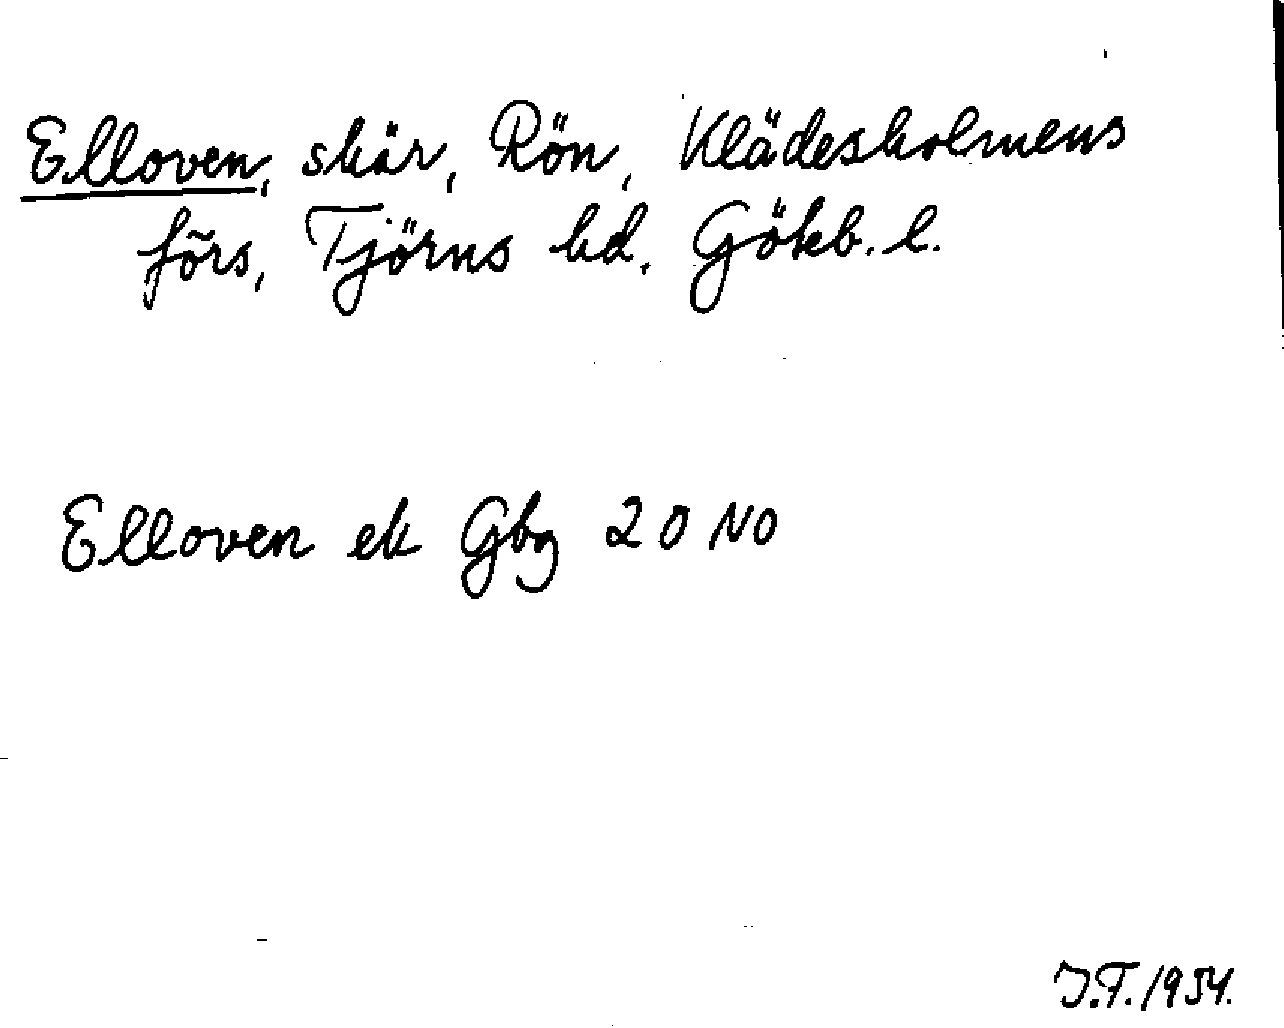 Elloven, skär, Rön, Klädesholmens
förs, Tjörns hd. Gökb. l.
Elloven ek Gbg 20 NO
J.F. 1954.